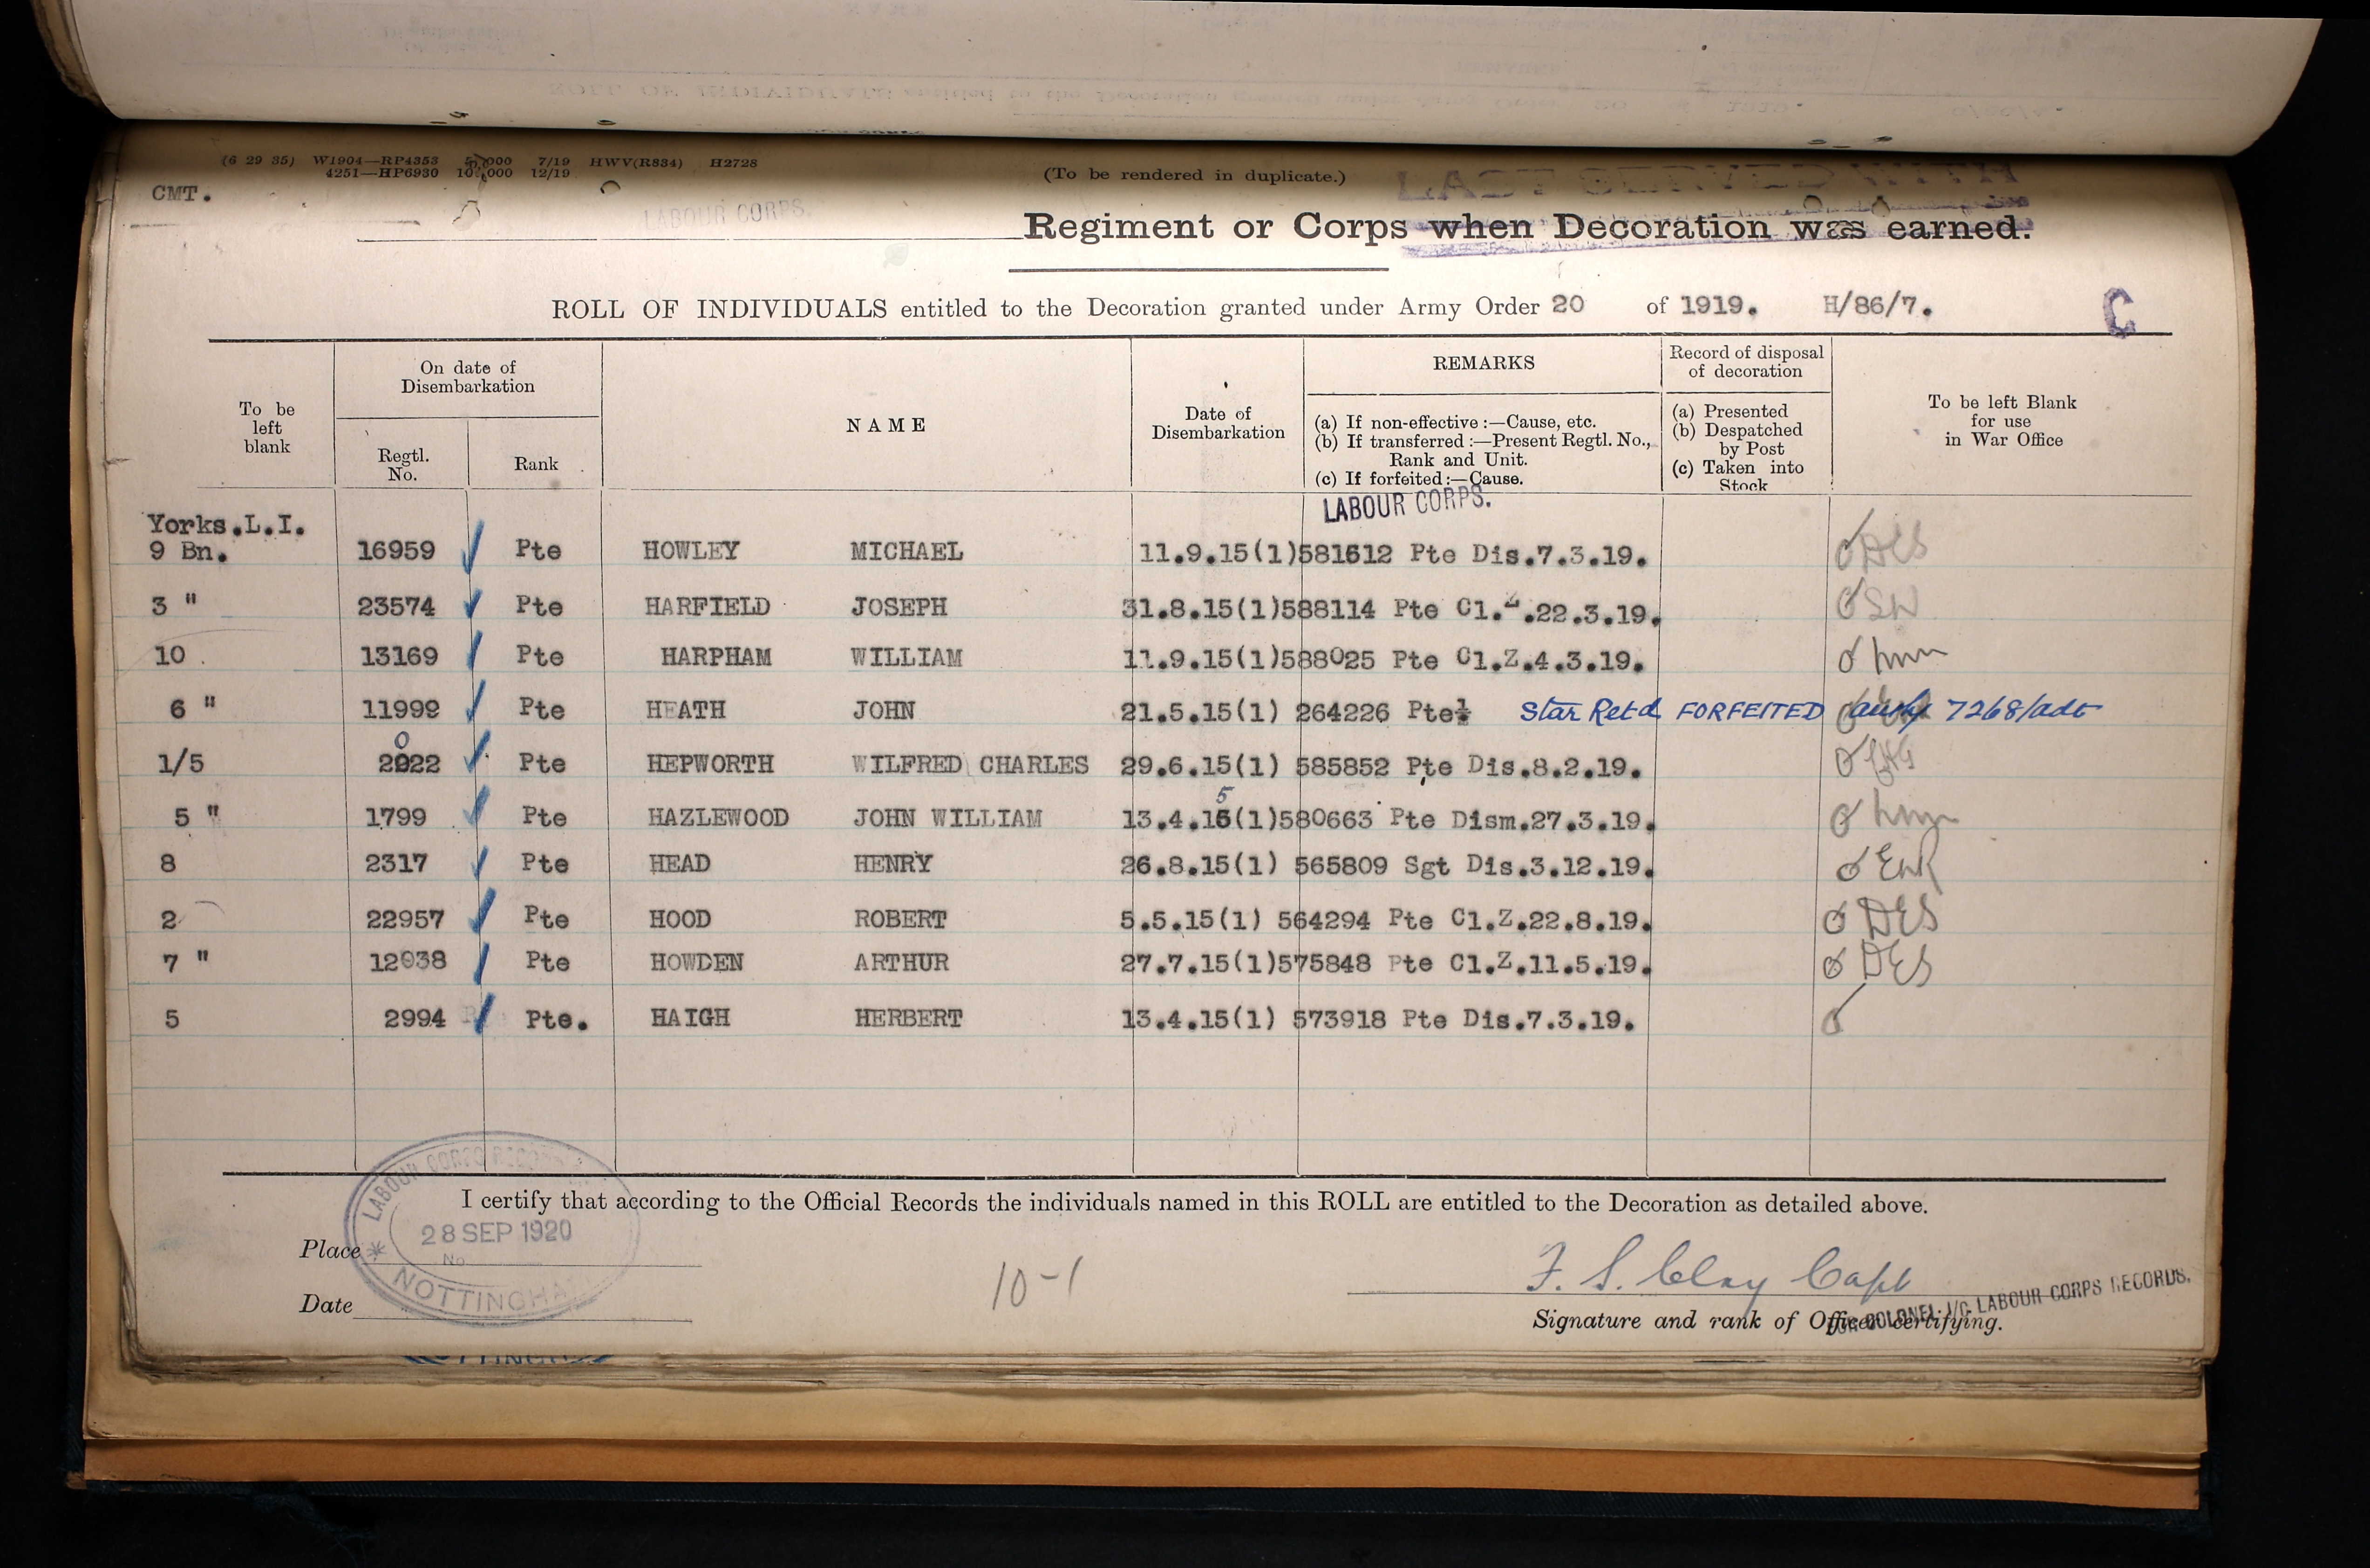 (6 29 35) W1904—RP4353 50,000 7/19 HWV(R834) H2728
4251—HP6930 100,000 12/19
(To be rendered in duplicate.)
CMT.
LABOUR CORPS.
Regiment or Corps when Decoration was earned.
ROLL OF INDIVIDUALS entitled to the Decoration granted under Army Order 20 of 1919. H/86/7. C
To be left blank
On date of Disembarkation
Regtl. No.
Rank
NAME
Date of Disembarkation
REMARKS
(a) If non-effective :—Cause, etc.
(b) If transferred :—Present Regtl. No., Rank and Unit.
(c) If forfeited :—Cause.
Record of disposal of decoration
(a) Presented
(b) Despatched by Post
(c) Taken into Stock
To be left Blank for use in War Office
LABOUR CORPS.
Yorks.L.I.
9 Bn. 16959 Pte HOWLEY MICHAEL 11.9.15(1)581612 Pte Dis.7.3.19. DES
3 " 23574 Pte HARFIELD JOSEPH 31.8.15(1)588114 Pte Cl.Z.22.3.19. SW
10 13169 Pte HARPHAM WILLIAM 11.9.15(1)588025 Pte Cl.Z.4.3.19.
6 " 11992 Pte HEATH JOHN 21.5.15(1) 264226 Pte Star Retd FORFEITED 7268/adt
1/5 2022 Pte HEPWORTH WILFRED CHARLES 29.6.15(1) 585852 Pte Dis.8.2.19.
5 " 1799 Pte HAZLEWOOD JOHN WILLIAM 13.4.15(1)580663 Pte Dism.27.3.19.
8 2317 Pte HEAD HENRY 26.8.15(1) 565809 Sgt Dis.3.12.19.
2 22957 Pte HOOD ROBERT 5.5.15(1) 564294 Pte Cl.Z.22.8.19. DES
7 " 12038 Pte HOWDEN ARTHUR 27.7.15(1)575848 Pte Cl.Z.11.5.19. DES
5 2994 Pte. HAIGH HERBERT 13.4.15(1) 573918 Pte Dis.7.3.19.
I certify that according to the Official Records the individuals named in this ROLL are entitled to the Decoration as detailed above.
LABOUR CORPS RECORDS
28 SEP 1920
No
NOTTINGHAM
Place
Date
10-1
F. S. Clay Capt
Signature and rank of Officer certifying.
FOR COLONEL I/C LABOUR CORPS RECORDS.